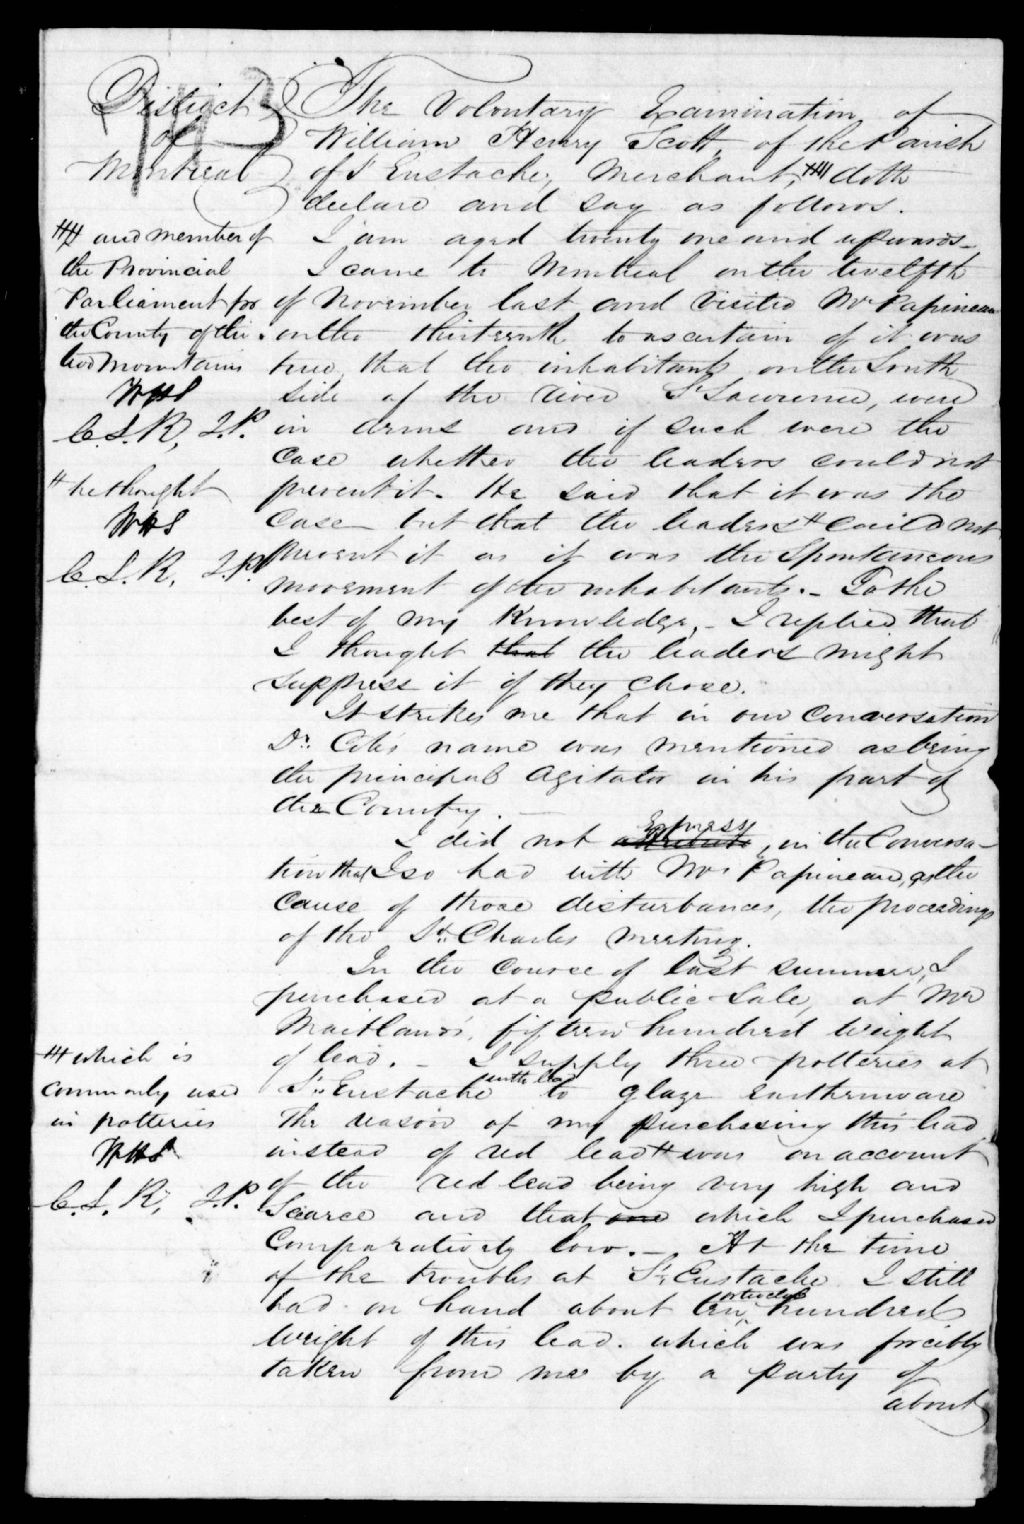 District
of
Montreal
The Voluntary Examination of
William Henry Scott, of the Parish
of St Eustache, Merchant, doth
declare and say as follows.
and member of
the Provincial
Parliament for
the County of the
two Mountains
WHS
C. S. R, J.P.
he thought
WHS
C. S. R, J.P.
I am aged twenty one and upwards_
I came to Montreal on the twelfth
of November last and visited Mr Papineau
on the thirteenth to ascertain if it was
true, that the inhabitants on the South
side of the river St Lawrence, were
in arms and if such were the
case whether the leaders could not
prevent it. He said that it was the
case but that the leaders could not
prevent it as it was the Spontaneous
movement of the inhabitants._ To the
best of my Knowledge,_ I replied that
I thought that the leaders might
suppress it if they chose.
It strikes me that in our Conversation
Dr. Côté's name was mentioned as being
the principal Agitator in his part of
the Country.
Express
I did not attribute, in the Conversa-
tion that I so had with Mr Papineau, as the
cause of those disturbances, the proceedings
of the St. Charles meeting.
In the course of last summer, I
purchased at a public Sale, at Mr
Maitland's, fifteen hundred weight
of lead._ I supply three potteries at
St. Eustache with lead to glaze Earthenware
The reason of my purchasing this lead
instead of red lead was on account
of the red lead being very high and
Scarce and that one which I purchased
Comparatively low._ At the time
of the troubles at St Eustache I still
had on hand about ten or twelve hundred
weight of this lead. which was forcibly
taken from me by a party of
about
which is
commonly used
in potteries
WHS
C. S. R, J.P.